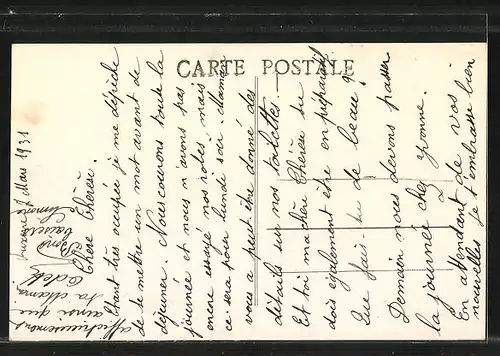 CARTE POSTALE
Mars 1931
Chère Thérèse.
Etant très occupée je me dépêche
de te mettre un mot avant de
déjeuner. Nous courons toute la
journée et nous n'avons pas
encore essayé nos robes mais
ce sera pour lundi soir. Maman
vous a peut-être donné des
détails sur nos toilettes.
Et toi ma chère Thérèse tu
dois également être en préparatif
Que fais-tu de beau?
Demain nous devons passer
la journée chez Yvonne.
En attendant de vos
nouvelles je t'embrasse bien
affectueusement
ainsi que
ta maman
Odette
Bons
baisers
Simone